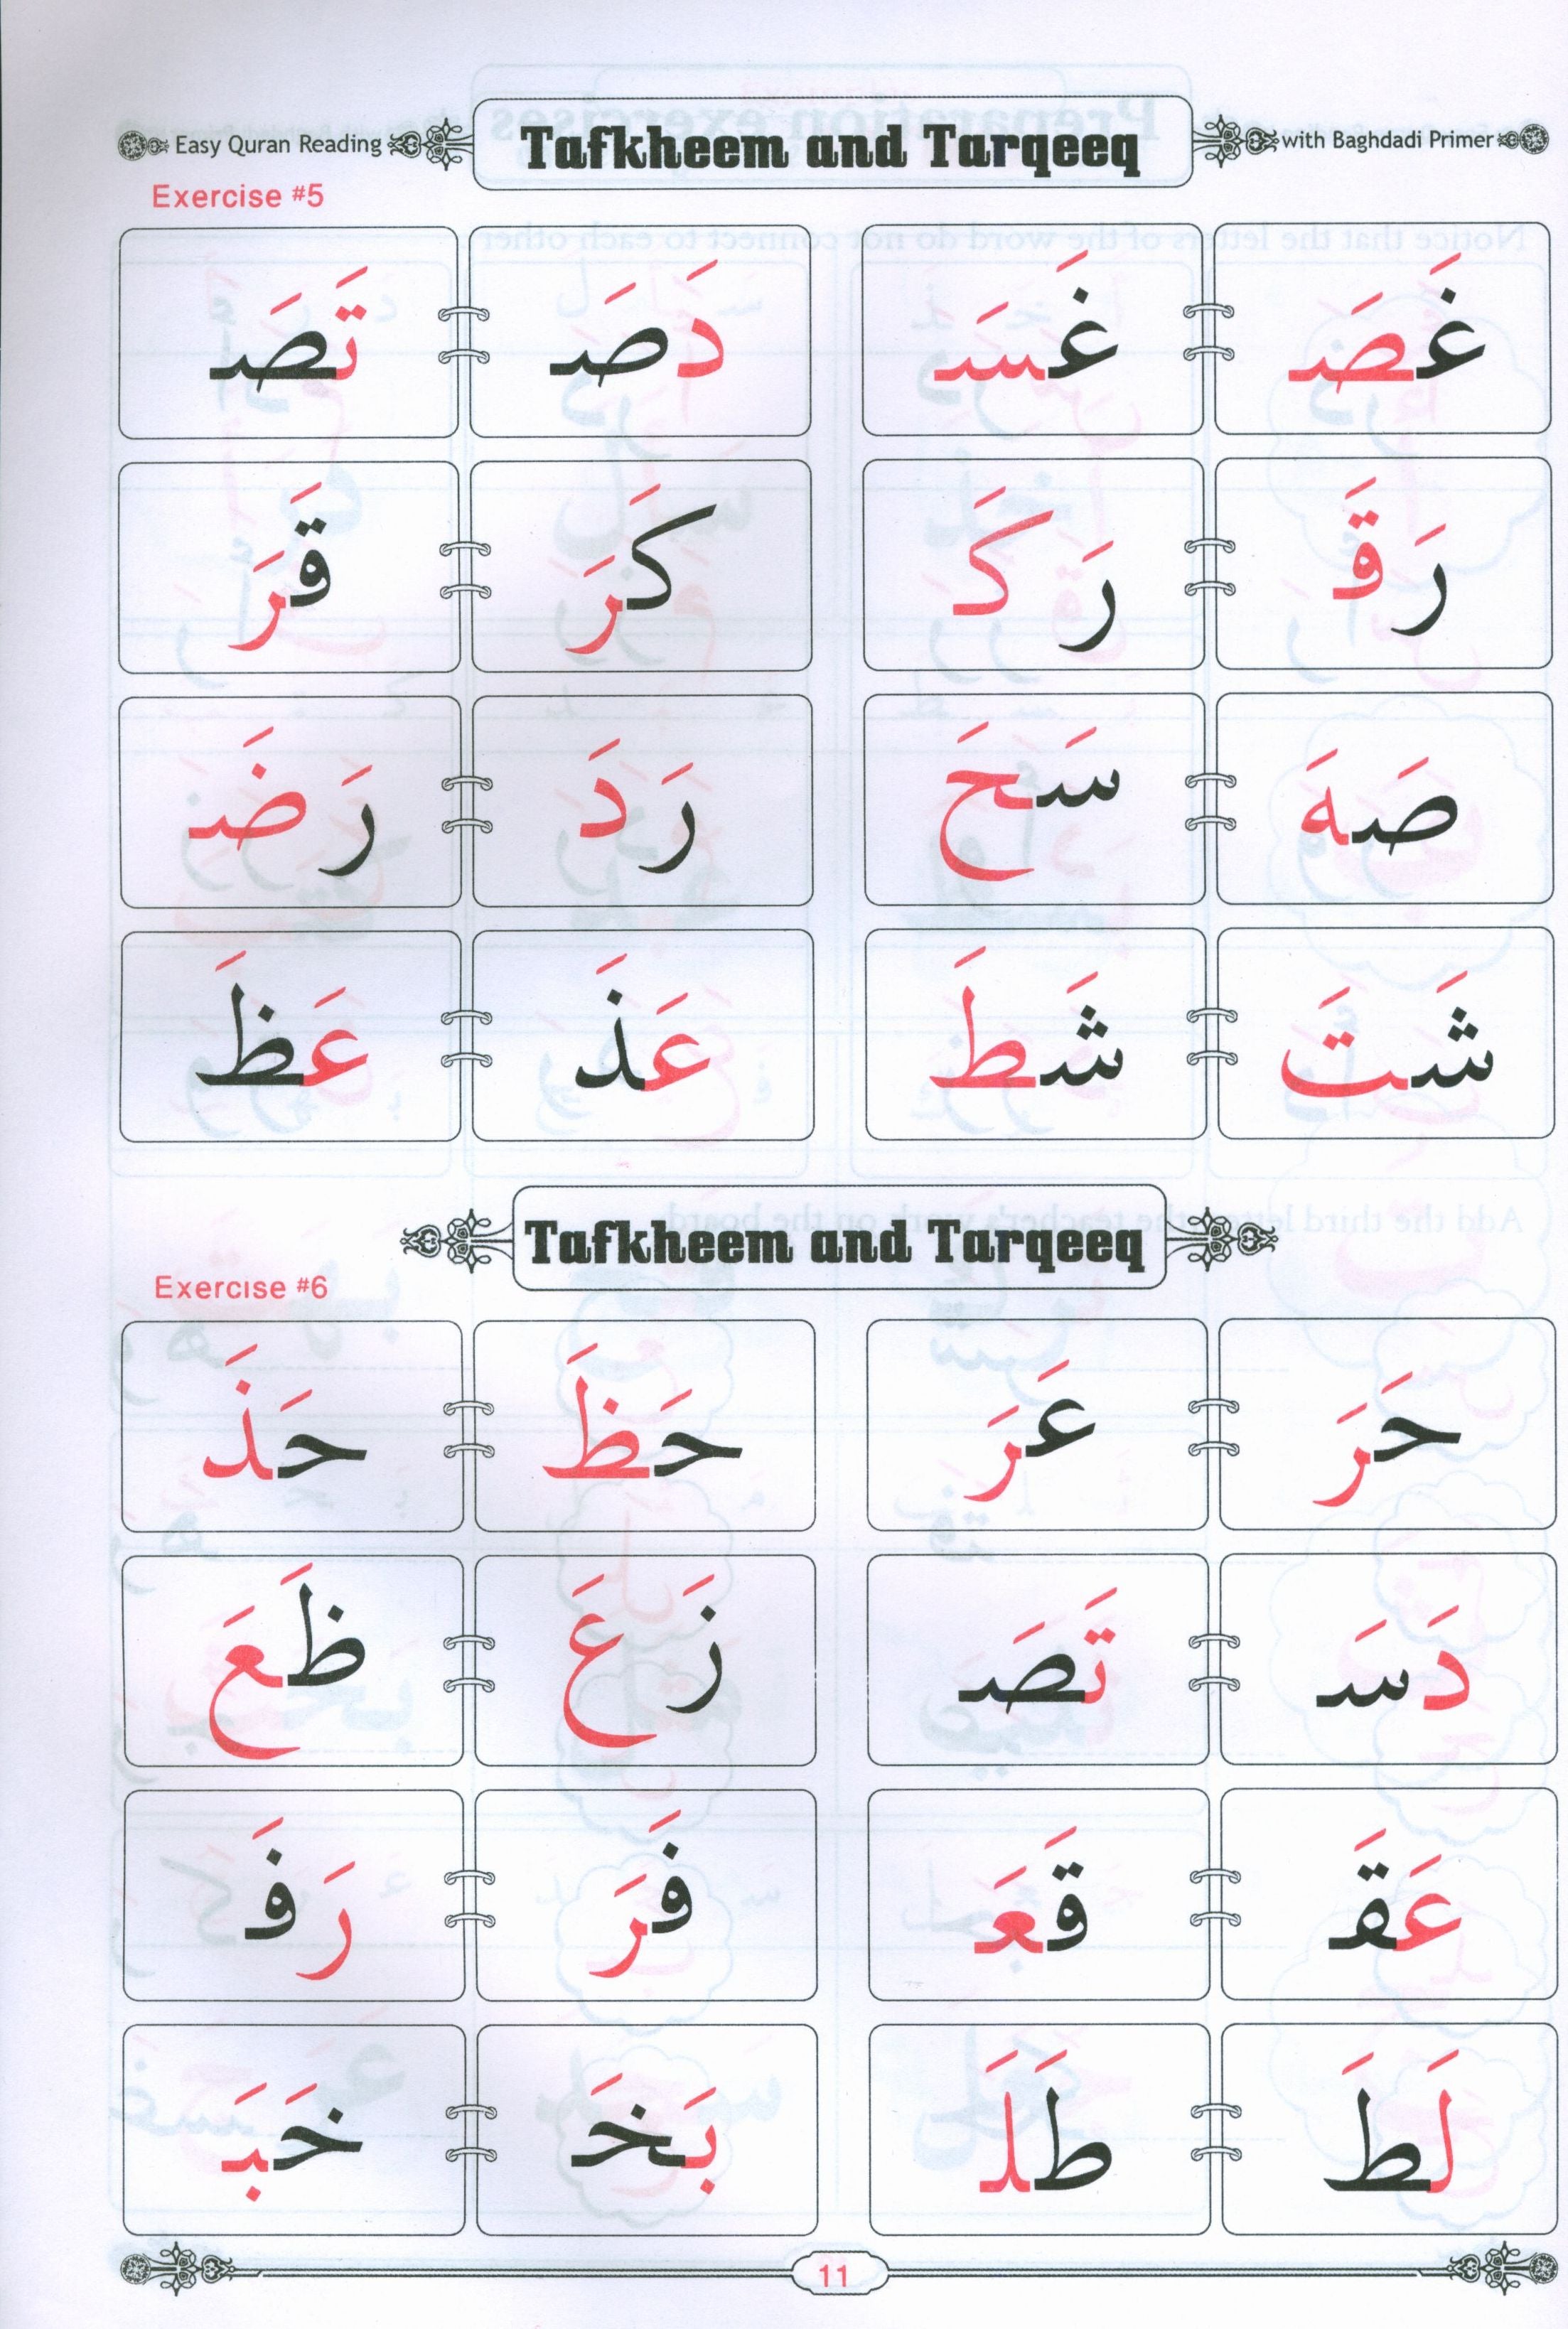 Easy Quran Reading Tafkheem and Tarqeeq with Baghdadi Primer
Exercise #5
غَصَـ غَسَـ دَصَـ تَصَـ
رَقَـ رَكَـ كَرَ قَرَ
صَهَـ سَحَ رَدَ رَضَـ
شَتَ شَطَ عَذَ عَظَ
Tafkheem and Tarqeeq
Exercise #6
حَرَ عَرَ حَظَ حَذَ
دَسَـ تَصَـ زَعَ ظَعَ
عَقَـ قَعَـ فَرَ رَفَـ
لَطَ طَلَـ بَخَـ خَبَـ
11